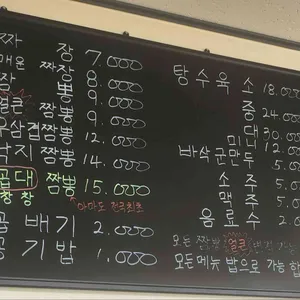 짜 장 7.000
매운 짜장 8.000
짬 뽕 9.000
얼큰 짬뽕 9.000
우삼겹짬뽕 12.000
낙지 짬뽕 14.000
곱대 짬뽕 15.000
창창 아마도 전국최초
곱 배기 2.000
공 기 밥 1.000
탕수육 소 18.000
중 24.000
대 30.000
미니 12.00
바삭군만두
소 주
맥 주
음 료 수
모든 짬뽕 얼큰
모든메뉴 밥으로 가능합